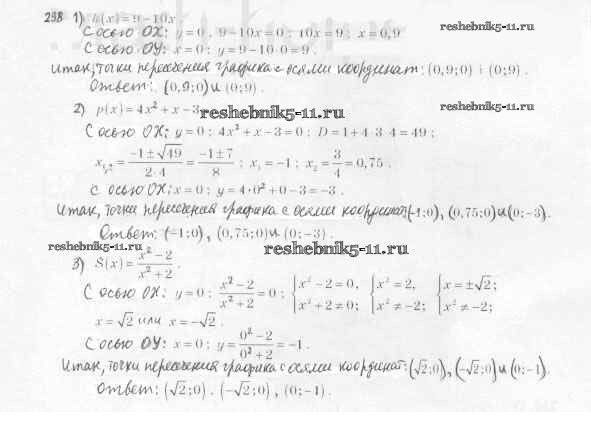 238 1) h(x) = 9 - 10x reshebnik5-11.ru
С осью OX: y = 0, 9 - 10x = 0; 10x = 9; x = 0,9
С осью OY: x = 0; y = 9 - 10·0 = 9.
Итак, точки пересечения графика с осями координат: (0,9;0) и (0;9).
Ответ: (0,9;0) и (0;9).
2) p(x) = 4x² + x - 3 reshebnik5-11.ru
С осью OX: y = 0; 4x² + x - 3 = 0; D = 1 + 4·3·4 = 49;
x₁,₂ = (-1 ± √49)/(2·4) = (-1 ± 7)/8; x₁ = -1; x₂ = 3/4 = 0,75.
С осью OX: x = 0; y = 4·0² + 0 - 3 = -3.
Итак, точки пересечения графика с осями координат: (-1;0), (0,75;0) и (0;-3).
Ответ: (-1;0), (0,75;0) и (0;-3).
reshebnik5-11.ru reshebnik5-11.ru
3) S(x) = (x² - 2)/(x² + 2).
С осью OX: y = 0; (x² - 2)/(x² + 2) = 0; {x² - 2 = 0, x² + 2 ≠ 0; {x² = 2, x² ≠ -2; {x = ±√2; x² ≠ -2;
x = √2 или x = -√2.
С осью OY: x = 0; y = (0² - 2)/(0² + 2) = -1.
Итак, точки пересечения графика с осями координат: (√2;0), (-√2;0) и (0;-1).
Ответ: (√2;0), (-√2;0), (0;-1).